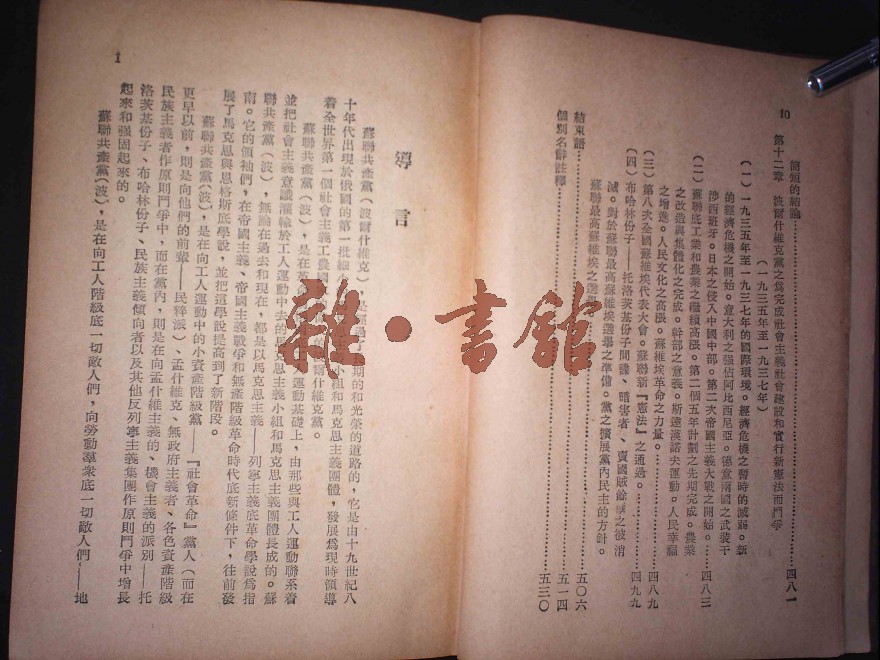 10
簡短的結論…………四八一
第十二章 波爾什維克黨之為完成社會主義社會建設和實行新憲法而鬥爭
（一九三五年至一九三七年）
（一）一九三五年至一九三七年的國際環境。經濟危機之暫時的減弱。新
的經濟危機之開始。意大利之強佔阿比西尼亞。德意兩國之武裝干
涉西班牙。日本之侵入中國中部。第二次帝國主義大戰之開始。…………四八三
（二）蘇聯底工業和農業之繼續高漲。第二個五年計劃之先期完成。農業
之改造與集體化之完成。幹部之意義。斯達漢諾夫運動。人民幸福
之增進。人民文化之高漲。蘇維埃革命之力量。
（三）第八次全國蘇維埃代表大會。蘇聯新『憲法』之通過。…………四八九
（四）布哈林份子——托洛茨基份子間諜、暗害者、賣國賊餘孽之被消
滅。對於蘇聯最高蘇維埃選舉之準備。黨之擴展黨內民主的方針。
蘇聯最高蘇維埃之選舉…………四九九
結束語…………五〇六
個別名辭註釋…………五一四
五三〇
1
導言
蘇聯共產黨（波爾什維克）是 期的和光榮的道路的，它是由十九世紀八
十年代出現於俄國的第一批細小 小組和馬克思主義團體，發展為現時領導
着全世界第一個社會主義工農國 爾什維克黨。
蘇聯共產黨（波），是在革 運動基礎上，由那些與工人運動聯系着
並把社會主義意識灌輸於工人運動中去的馬克思主義小組和馬克思主義團體長成的。蘇
聯共產黨（波），無論在過去和現在，都是以馬克思主義——列寧主義底革命學說為指
南。它的領袖們，在帝國主義、帝國主義戰爭和無產階級革命時代底新條件下，往前發
展了馬克思與恩格斯底學說，並把這學說提高到了新階段。
蘇聯共產黨（波），是在向工人運動中的小資產階級黨——『社會革命』黨人（而在
更早以前，則是向他們的前輩——民粹派）、孟什維克、無政府主義者、各色資產階級
民族主義者作原則鬥爭中，而在黨內，則是在向孟什維主義的、機會主義的派別——托
洛茨基份子、布哈林份子、民族主義傾向者以及其他反列寧主義集團作原則鬥爭中增長
起來和強固起來的。
蘇聯共產黨（波），是在向工人階級底一切敵人們，向勞動羣衆底一切敵人們——地
雜·書館